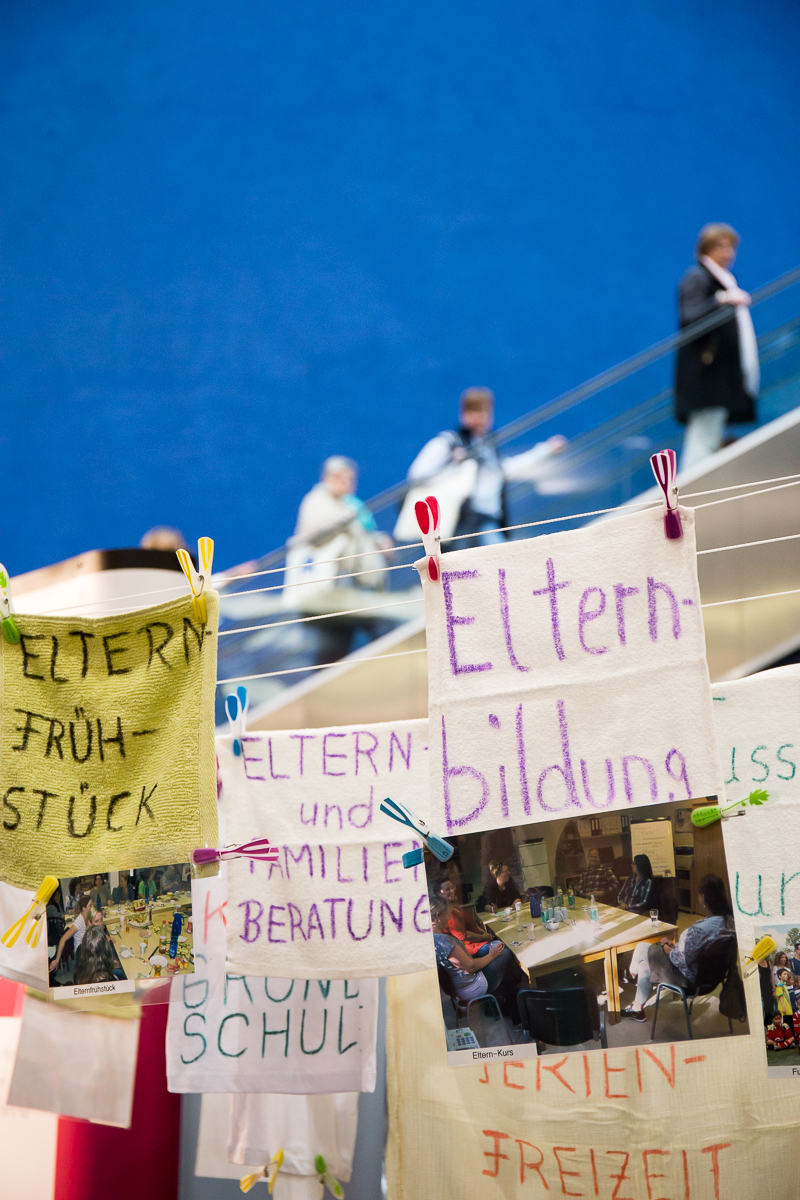 ELTERN-
FRÜH-
STÜCK
Elternfrühstück
ELTERN-
und
FAMILIEN
BERATUNG
Eltern-
bildung
Eltern-Kurs
GRUND
SCHUL
FERIEN-
FREIZEIT